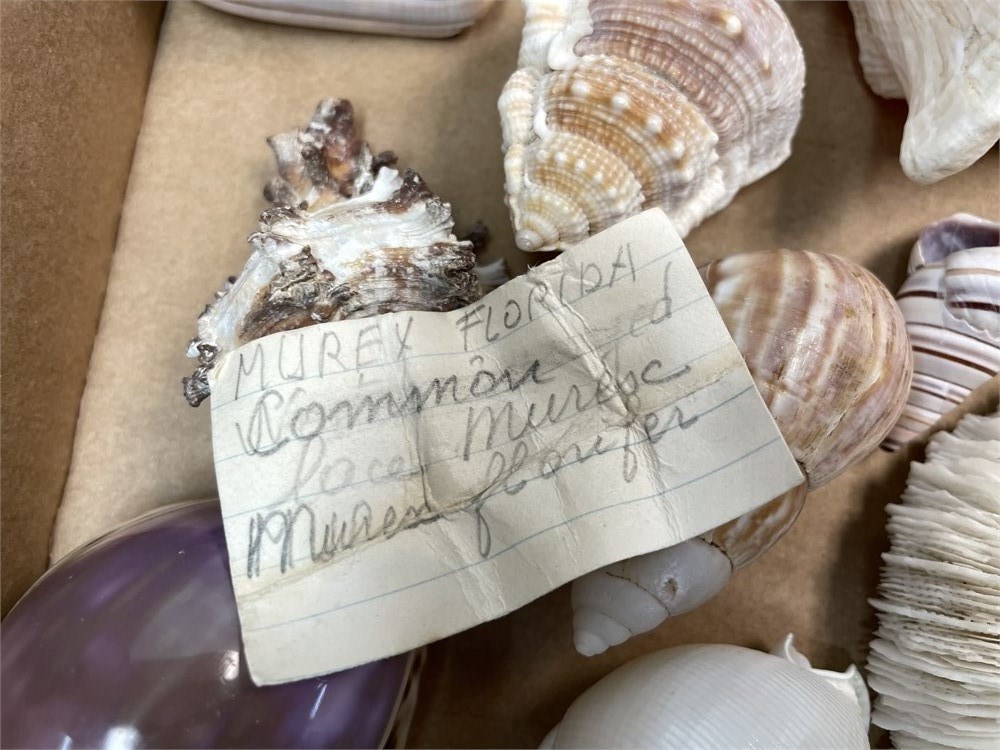 MUREX FLORIDA
Common
lace Murex
Murex florifer